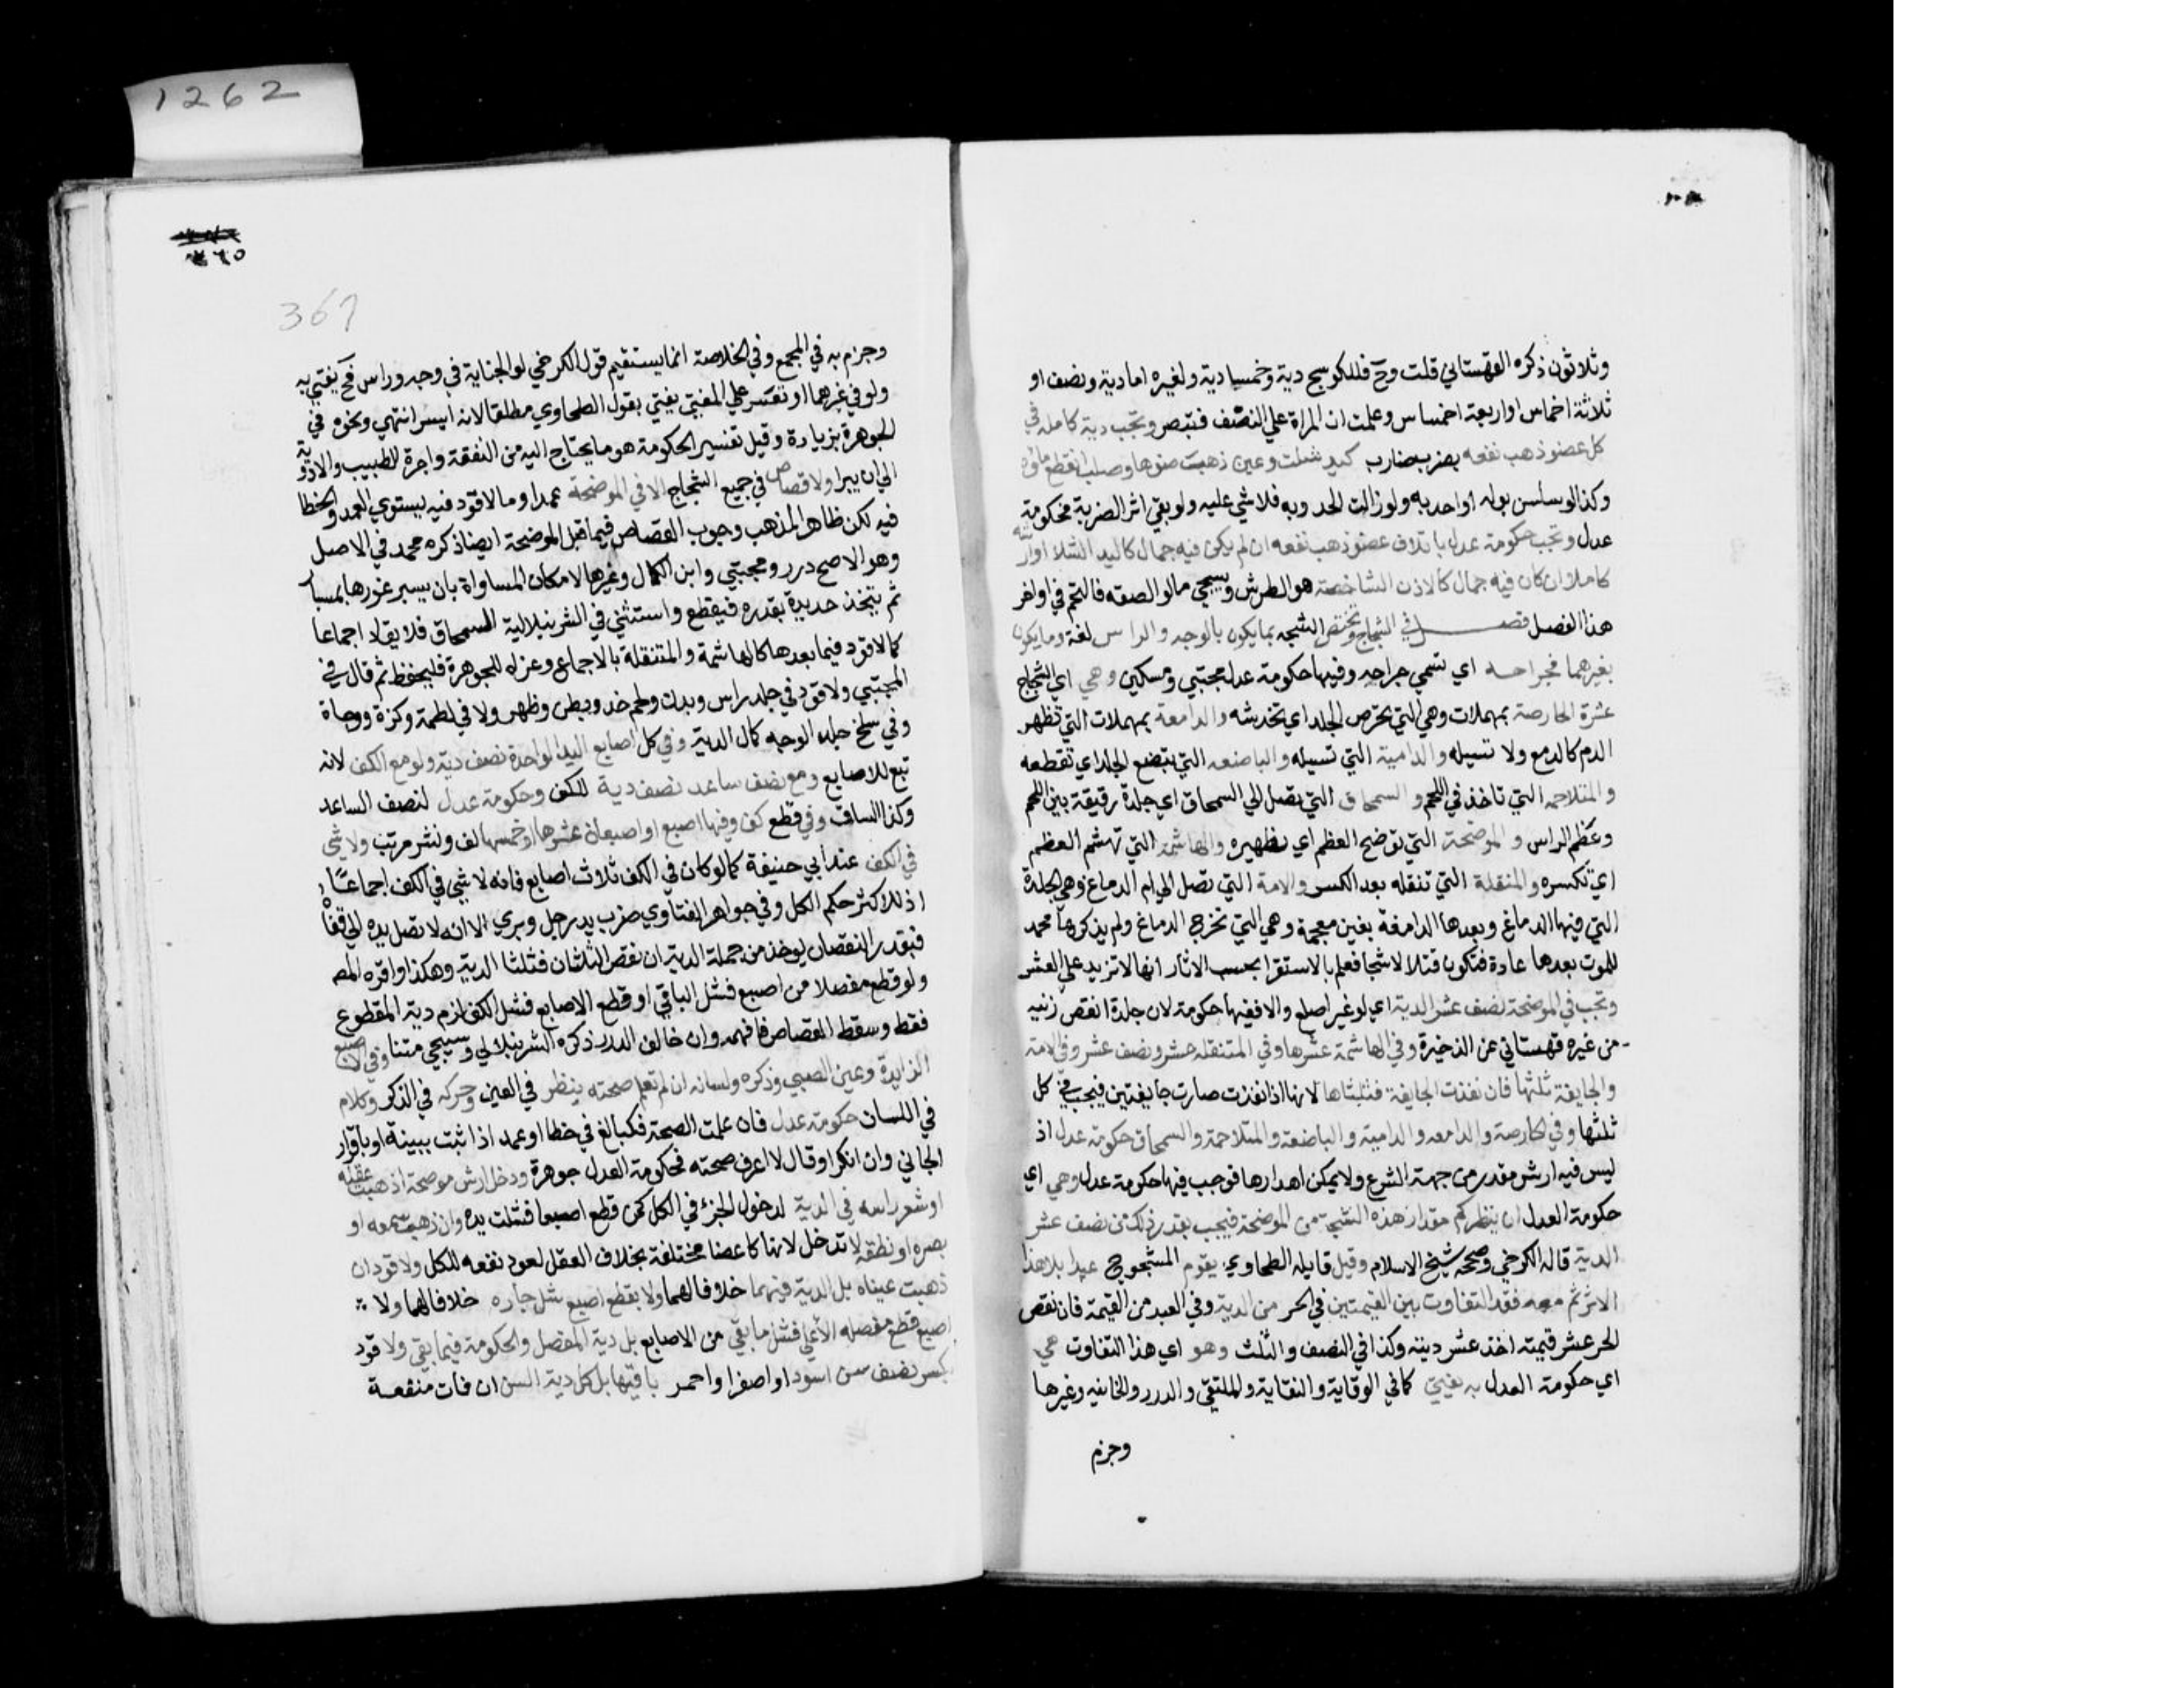 وثلاثون ذكره القهستاني قلت وح فللكوسج دية وخمسا دية ولغيره اما دية ونصف او
ثلاثة اخماس او اربعة اخماس وعلمت ان المراة علي النصف فتبصر وتجب دية كاملة في
كل عضو ذهب نفعه بضرب ضارب كيد شلت وعين ذهب ضوها وصلب انقطع ماؤه
وكذا لو سلس بوله او احدبه ولو زالت الحدوبه فلا شي عليه ولو بقي اثر الضربة فحكومة
عدل وتجب حكومة عدل باتلاف عضو ذهب نفعه ان لم يكن فيه جمال كاليد الشلا او ارشه
كاملا وان كان فيه جمال كالاذن الشاخصة هو الطرش وسيجي مالو الصقه فالتحم في اواخر
هذا الفصل فصل في الشجاج وتختص الشجه بما يكون بالوجه والراس لغة وما يكون
بغيرهما فجراحه اي تسمي جراحه وفيها حكومة عدل مجتبي ومسكين وهي اي الشجاج
عشرة الحارصة بمهملات وهي التي تحرص الجلد اي تخدشه والدامعة بمهملات التي تظهر
الدم كالدمع ولا تسيله والدامية التي تسيله والباضعه التي تبضع الجلد اي تقطعه
والمتلاحمه التي تاخذ في اللحم والسمحاق التي تصل الي السمحاق اي جلدة رقيقة بين اللحم
وعظم الراس والموضحة التي توضح العظم اي تظهره والهاشمة التي تهشم العظم
اي تكسره والمنقلة التي تنقله بعد الكسر والامة التي تصل الي ام الدماغ وهي الجلدة
التي فيها الدماغ وبعدها الدامغة بغين معجمة وهي التي تخرج الدماغ ولم يذكرها محمد
للموت بعدها عادة فتكون قتلا لا شجا فعلم بالاستقرا بحسب الاثار انها لا تزيد علي العشر
وتجب في الموضحة نصف عشر الدية اي لو غير اصلع والا ففيها حكومة لان جلدة انقص زنيه
من غيره قهستاني عن الذخيرة وفي الهاشمة عشرها وفي المتنقله عشر ونصف عشر وفي الامة
والجايفة ثلثها فان نفذت الجايفة فثلثاها لانها اذا نفذت صارت جايفتين فيجب في كل
ثلثها وفي الحارصة والدامعه والدامية والباضعة والمتلاحمة والسمحاق حكومة عدل اذ
ليس فيه ارش مقدر من جهة الشرع ولا يمكن اهدارها فوجب فيها حكومة عدل وهي اي
حكومة العدل ان ينظر كم مقدار هذه الشجة من الموضحة فيجب بقدر ذلك من نصف عشر
الدية قاله الكرخي وصححه شيخ الاسلام وقيل قايله الطحاوي يقوم المشجوج عبدا بلا هذا
الاثر ثم معه فقدر التفاوت بين القيمتين في الحر من الدية وفي العبد من القيمة فان نقص
الحر عشر قيمته اخذ عشر ديته وكذا في النصف والثلث وهو اي هذا التفاوت هي
اي حكومة العدل به يفتي كما في الوقاية والنقاية والملتقي والدرر والخانيه وغيرها
وجزم
٣٦٥
361
وجزم به في المجمع وفي الخلاصة انما يستقيم قول الكرخي لو الجناية في وجه وراس فح يفتي به
ولو في غيرهما او تعسر علي المفتي يفتي بقول الطحاوي مطلقا لانه ايسر انتهي ونحوه في
الجوهرة بزيادة وقيل تفسير الحكومة هو ما يحتاج اليه من النفقة واجرة للطبيب والادوية
الي ان يبرا ولا قصاص في جميع الشجاج الا في الموضحة عمدا وما لا قود فيه يستوي العمد والخطا
فيه لكن ظاهر المذهب وجوب القصاص فيما قبل الموضحة ايضا ذكره محمد في الاصل
وهو الاصح درر ومجتبي وابن الكمال وغيرها لامكان المساواة بان يسبر غورها بمسبار
ثم يتخذ حديدة بقدره فيقطع واستثني في الشرنبلالية السمحاق فلا يقاد اجماعا
كما لا قود فيما بعدها كالهاشمة والمتنقلة بالاجماع وعزاه للجوهرة فليحفظ ثم قال في
المجتبي ولا قود في جلد راس وبدن ولحم خد وبطن وظهر ولا في لطمة وكزة ووجاة
وفي سلخ جلد الوجه كمال الدية وفي كل اصابع اليد الواحدة نصف دية ولو مع الكف لانه
تبع للاصابع ومع نصف ساعد نصف دية للكف وحكومة عدل لنصف الساعد
وكذا الساق وفي قطع كف وفيها اصبع او اصبعان عشرها او خمسها لف ونشر مرتب ولا شي
في الكف عند ابي حنيفة كما لو كان في الكف ثلاث اصابع فانه لا شي في الكف اجماعا
اذ للاكثر حكم الكل وفي جواهر الفتاوي ضرب يد رجل وبري الا انه لا تصل يده الي قفاه
فبقدر النقصان يوخذ من جملة الدية ان نقص الثلثان فثلثا الدية وهكذا واقره المص
ولو قطع مفصلا من اصبع فشل الباقي او قطع الاصابع فشل الكف لزم دية المقطوع
فقط وسقط القصاص فافهمه وان خالف الدرر ذكره الشرنبلالي وسيجي متنا وفي الاصبع
الزايدة وعين الصبي وذكره ولسانه ان لم تعلم صحته ينظر في العين وحركه في الذكر وكلام
في اللسان حكومة عدل فان علمت الصحة فكبالغ في خطا او عمد اذا ثبت ببينة او باقرار
الجاني وان انكر او قال لا اعرف صحته فحكومة العدل جوهرة ودخل ارش موضحة اذهبت عقله
او شعر راسه في الدية لدخول الجزء في الكل كمن قطع اصبعا فشلت يده وان ذهب سمعه او
بصره او نطقه لا تدخل لانها كاعضا مختلفة بخلاف العقل لعود نفعه للكل ولا قود ان
ذهبت عيناه بل الدية فيهما خلافا لهما ولا بقطع اصبع شل جاره خلافا لهما ولا
اصبع قطع مفصله الاعلي فشل ما بقي من الاصابع بل دية المفصل والحكومة فيما بقي ولا قود
بكسر نصف سن اسود او اصفر او احمر باقيها بل كل دية السن ان فات منفعة
1262